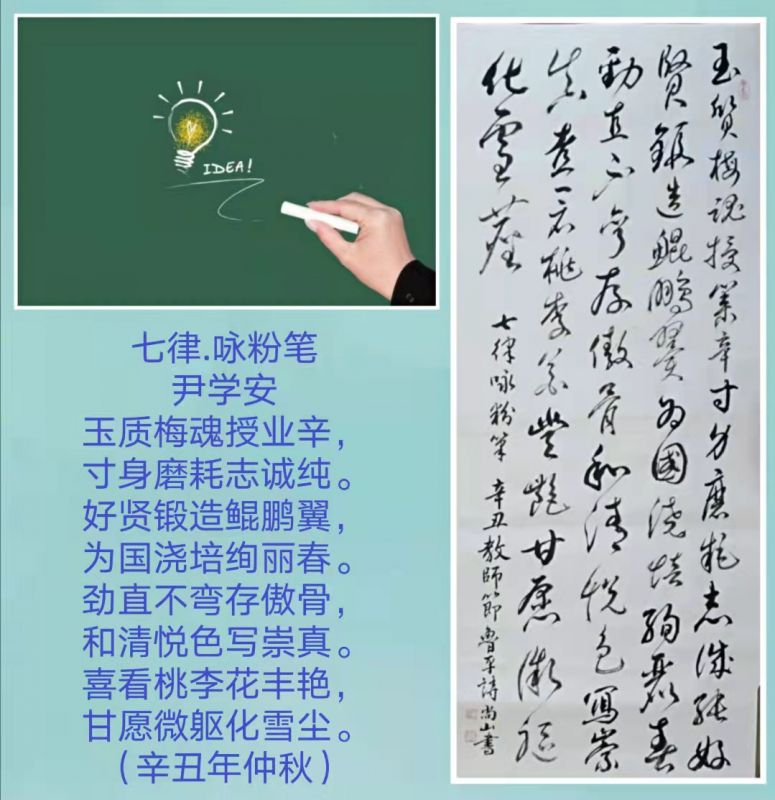 IDEA!
七律.咏粉笔
尹学安
玉质梅魂授业辛，
寸身磨耗志诚纯。
好贤锻造鲲鹏翼，
为国浇培绚丽春。
劲直不弯存傲骨，
和清悦色写崇真。
喜看桃李花丰艳，
甘愿微躯化雪尘。
（辛丑年仲秋）
玉质梅魂授業辛寸身磨耗志诚純好
贤鍛造鲲鹏翼为國浇培絢麗春
勁直不弯存傲骨和清悦色寫崇
真喜看桃李花豐艷甘愿微躯
化雪塵
七律咏粉笔 辛丑教師節 魯平詩 尚山書